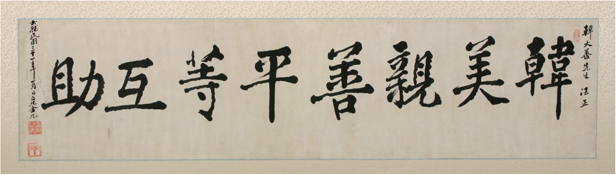 韓大善先生 法正
韓美親善平等互助
大韓民國三十一年